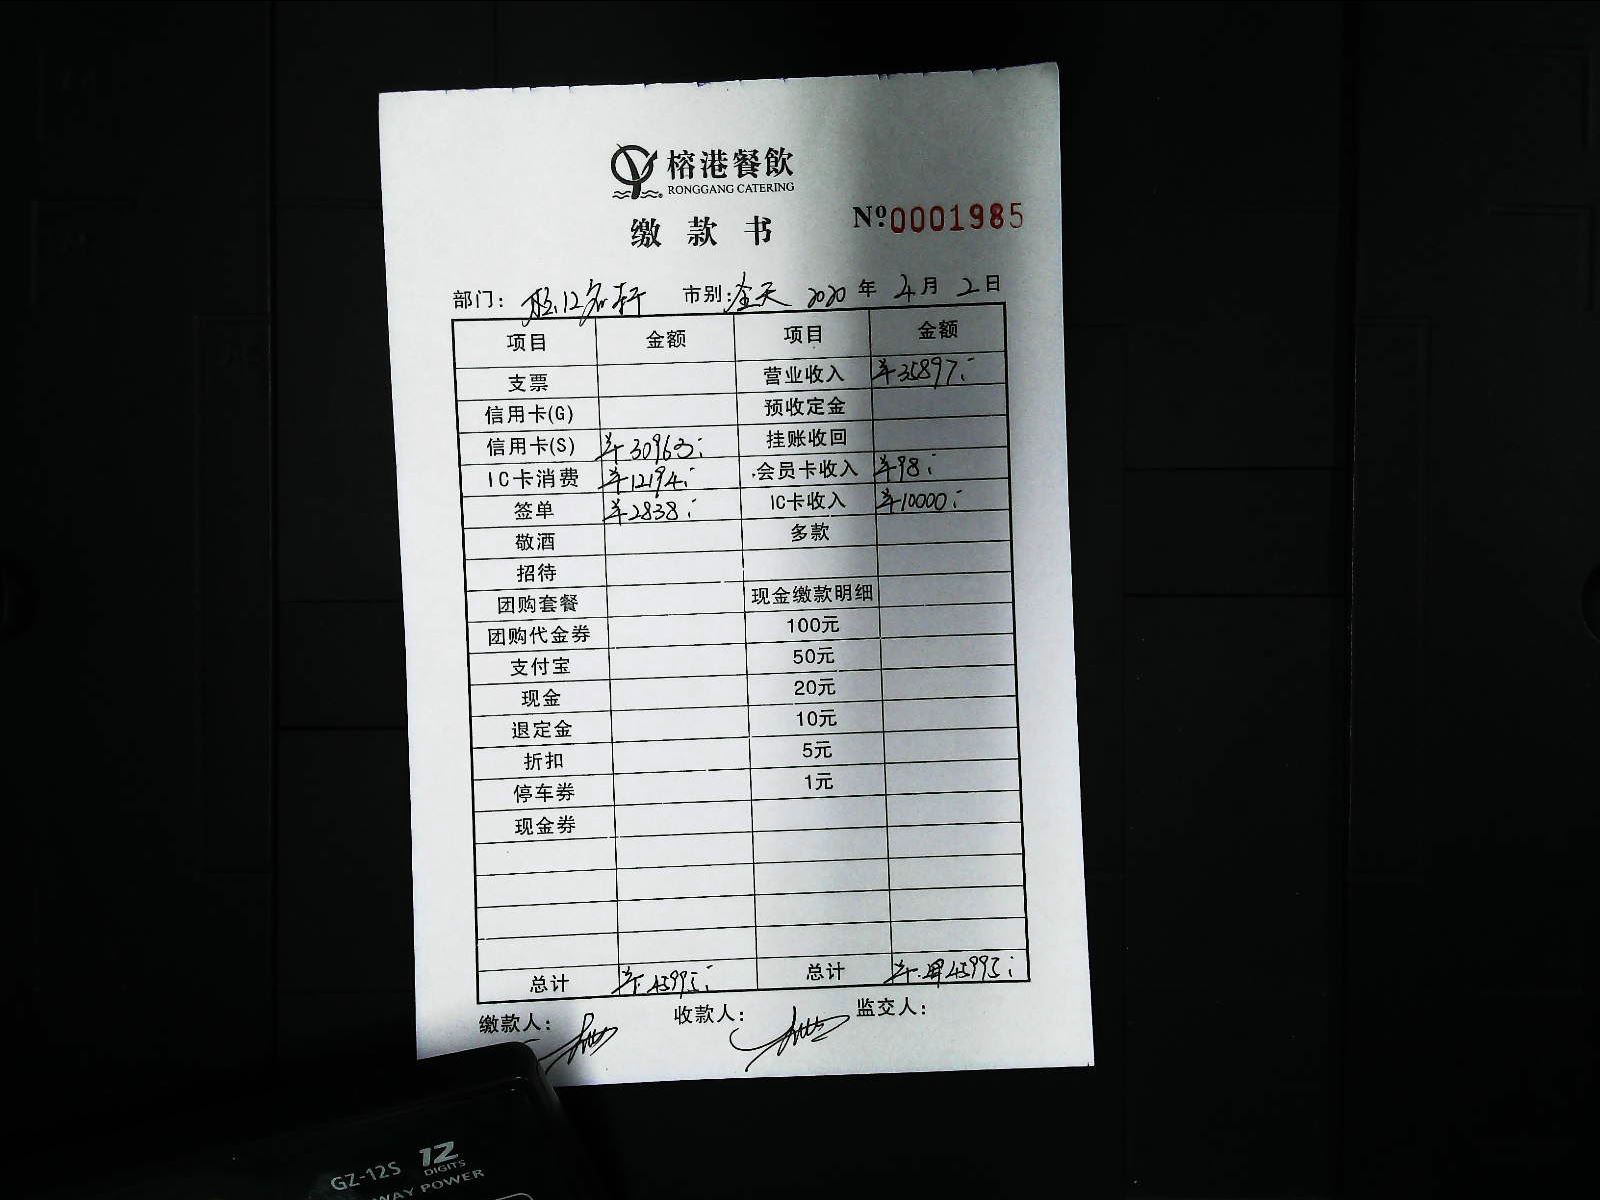 榕港餐飲
RONGGANG CATERING
缴款书
Nº0001985
部门： 市别:全天 2020年4月2日
项目 金额 项目 金额
支票 营业收入 ¥35897
信用卡(G) 预收定金
信用卡(S) ¥30963 挂账收回
IC卡消费 ¥12194 会员卡收入 ¥98
签单 ¥2838 IC卡收入 ¥10000
敬酒 多款
招待
团购套餐 现金缴款明细
团购代金券 100元
支付宝 50元
现金 20元
退定金 10元
折扣 5元
停车券 1元
现金券
总计 ¥45995 总计 ¥45995
缴款人： 收款人： 监交人：
GZ-12S 12
DIGITS
WAY POWER